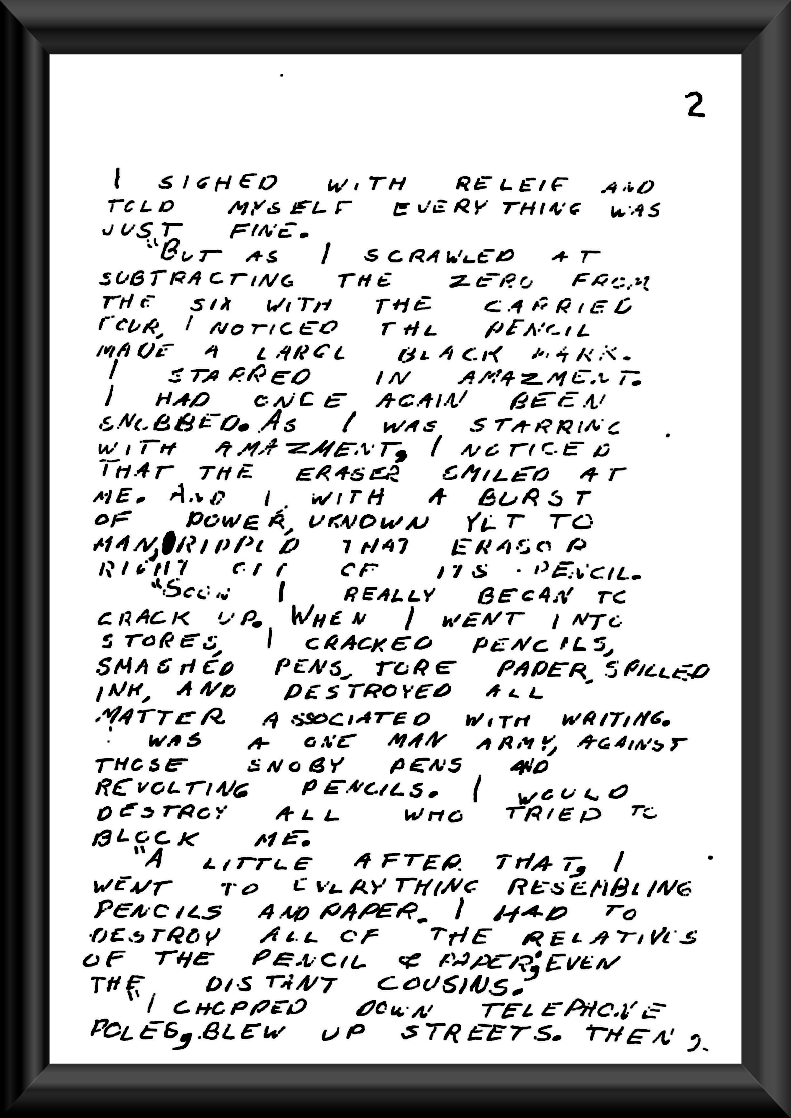 2
I SIGHED WITH RELEIF AND
TOLD MYSELF EVERYTHING WAS
JUST FINE.
"BUT AS I SCRAWLED AT
SUBTRACTING THE ZERO FROM
THE SIX WITH THE CARRIED
FOUR, I NOTICED THE PENCIL
MADE A LARGE BLACK MARK.
I STARRED IN AMAZMENT.
I HAD ONCE AGAIN BEEN
SNOBBED. AS I WAS STARRING
WITH AMAZMENT, I NOTICED
THAT THE ERASER SMILED AT
ME. AND I WITH A BURST
OF POWER, UKNOWN YET TO
MAN, RIPPED THAT ERASOR
RIGHT OFF OF ITS PENCIL.
"SOON I REALLY BEGAN TO
CRACK UP. WHEN I WENT INTO
STORES, I CRACKED PENCILS,
SMASHED PENS, TORE PAPER, SPILLED
INK, AND DESTROYED ALL
MATTER ASSOCIATED WITH WRITING.
I WAS A ONE MAN ARMY, AGAINST
THOSE SNOBY PENS AND
REVOLTING PENCILS. I WOULD
DESTROY ALL WHO TRIED TO
BLOCK ME.
"A LITTLE AFTER THAT, I
WENT TO EVERYTHING RESEMBLING
PENCILS AND PAPER. I HAD TO
DESTROY ALL OF THE RELATIVES
OF THE PENCIL & PAPER; EVEN
THE DISTANT COUSINS.
"I CHOPPED DOWN TELEPHONE
POLES, BLEW UP STREETS. THEN